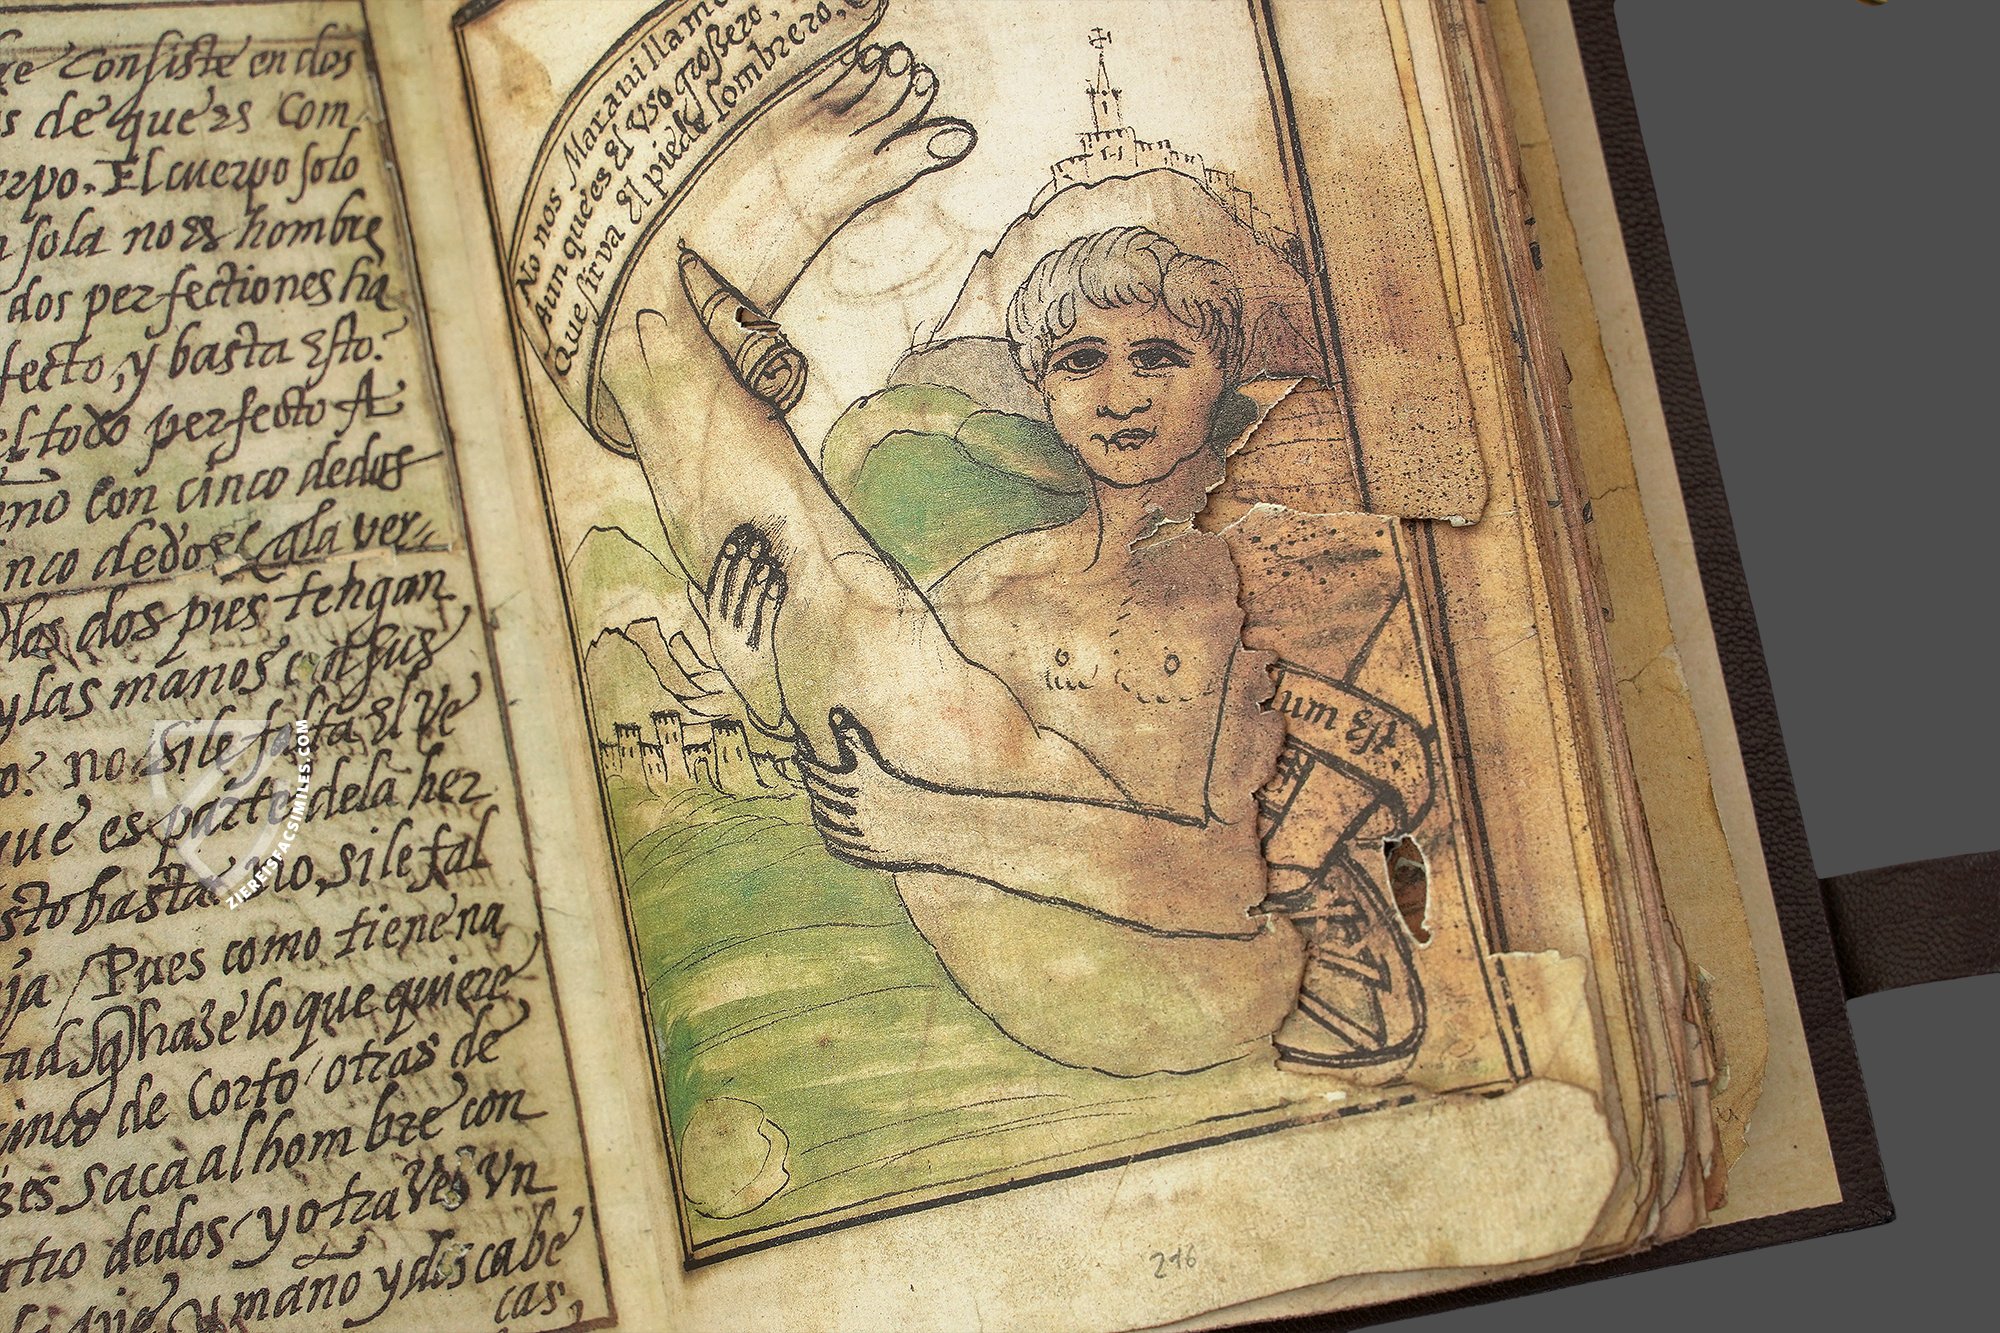 re consiste en dos
s de que es com
erpo. El cuerpo solo
n sola no es hombre
dos perfectiones ha
fecto, y basta esto?
el todo perfecto A
mno con cinco dedos
nco dedos ala ver
los dos pies tengan
y las manos
o? no, si le falta el Ve
que es parte dela her
sto basta? no, si le fal
ja Pues como tiene na
tad haze lo que quiere
cinco de corto otras de
zes saca al hombre con
atro dedos y otra Vez Vn
pie y mano y dos cabe
cas,
No nos Marauillamo
Aunque es El vso grossero,
Que sirva El pie de sombrero,
lum Est
216
ZIEREISFACSIMILES.COM